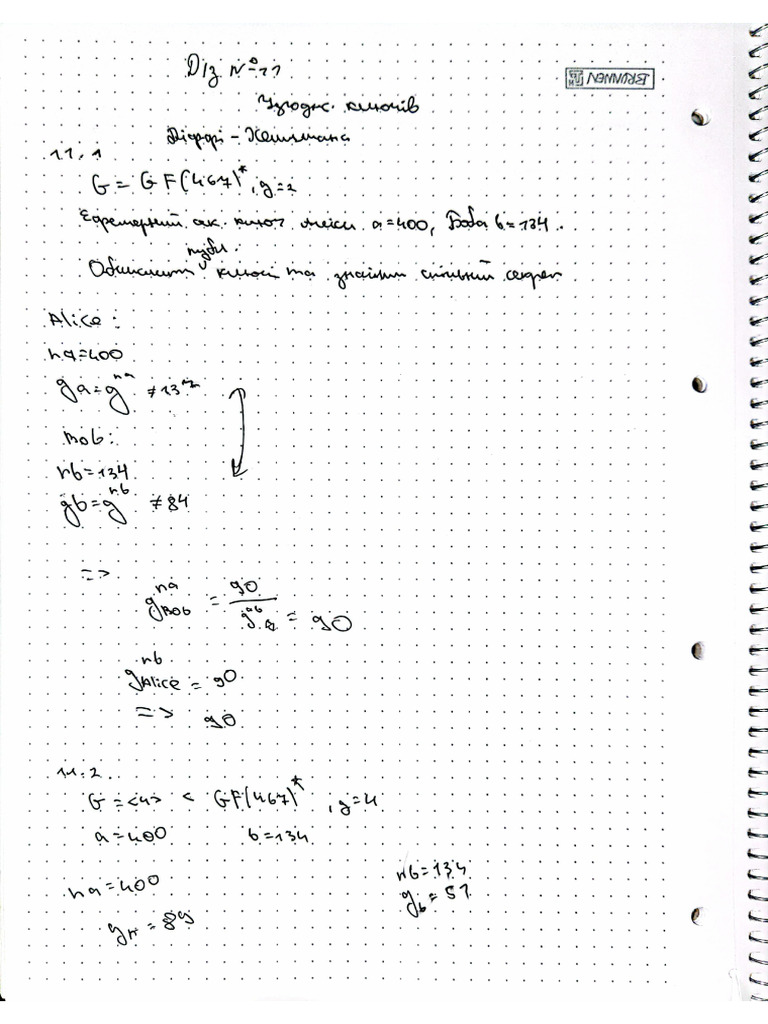 Д/з №11
BRUNNEN
Узгодж. ключів
Діффі - Хеллмана
11.1
G = GF(467)*, g=2
Ефемерний ключ a=400, Боба b=134.
публ.
Обчислити ключі та знайти спільний секрет
Alice:
na=400
ga=g^na ≠137
Bob:
nb=134
gb=g^nb ≠84
=>
g_Bob^na = 90 = 90
g_Alice^nb = 90
=> 90
11.2.
G = <4> < GF(467)*, g=4
a=400 b=134
na=400 nb=134
= 89 g_b = 51